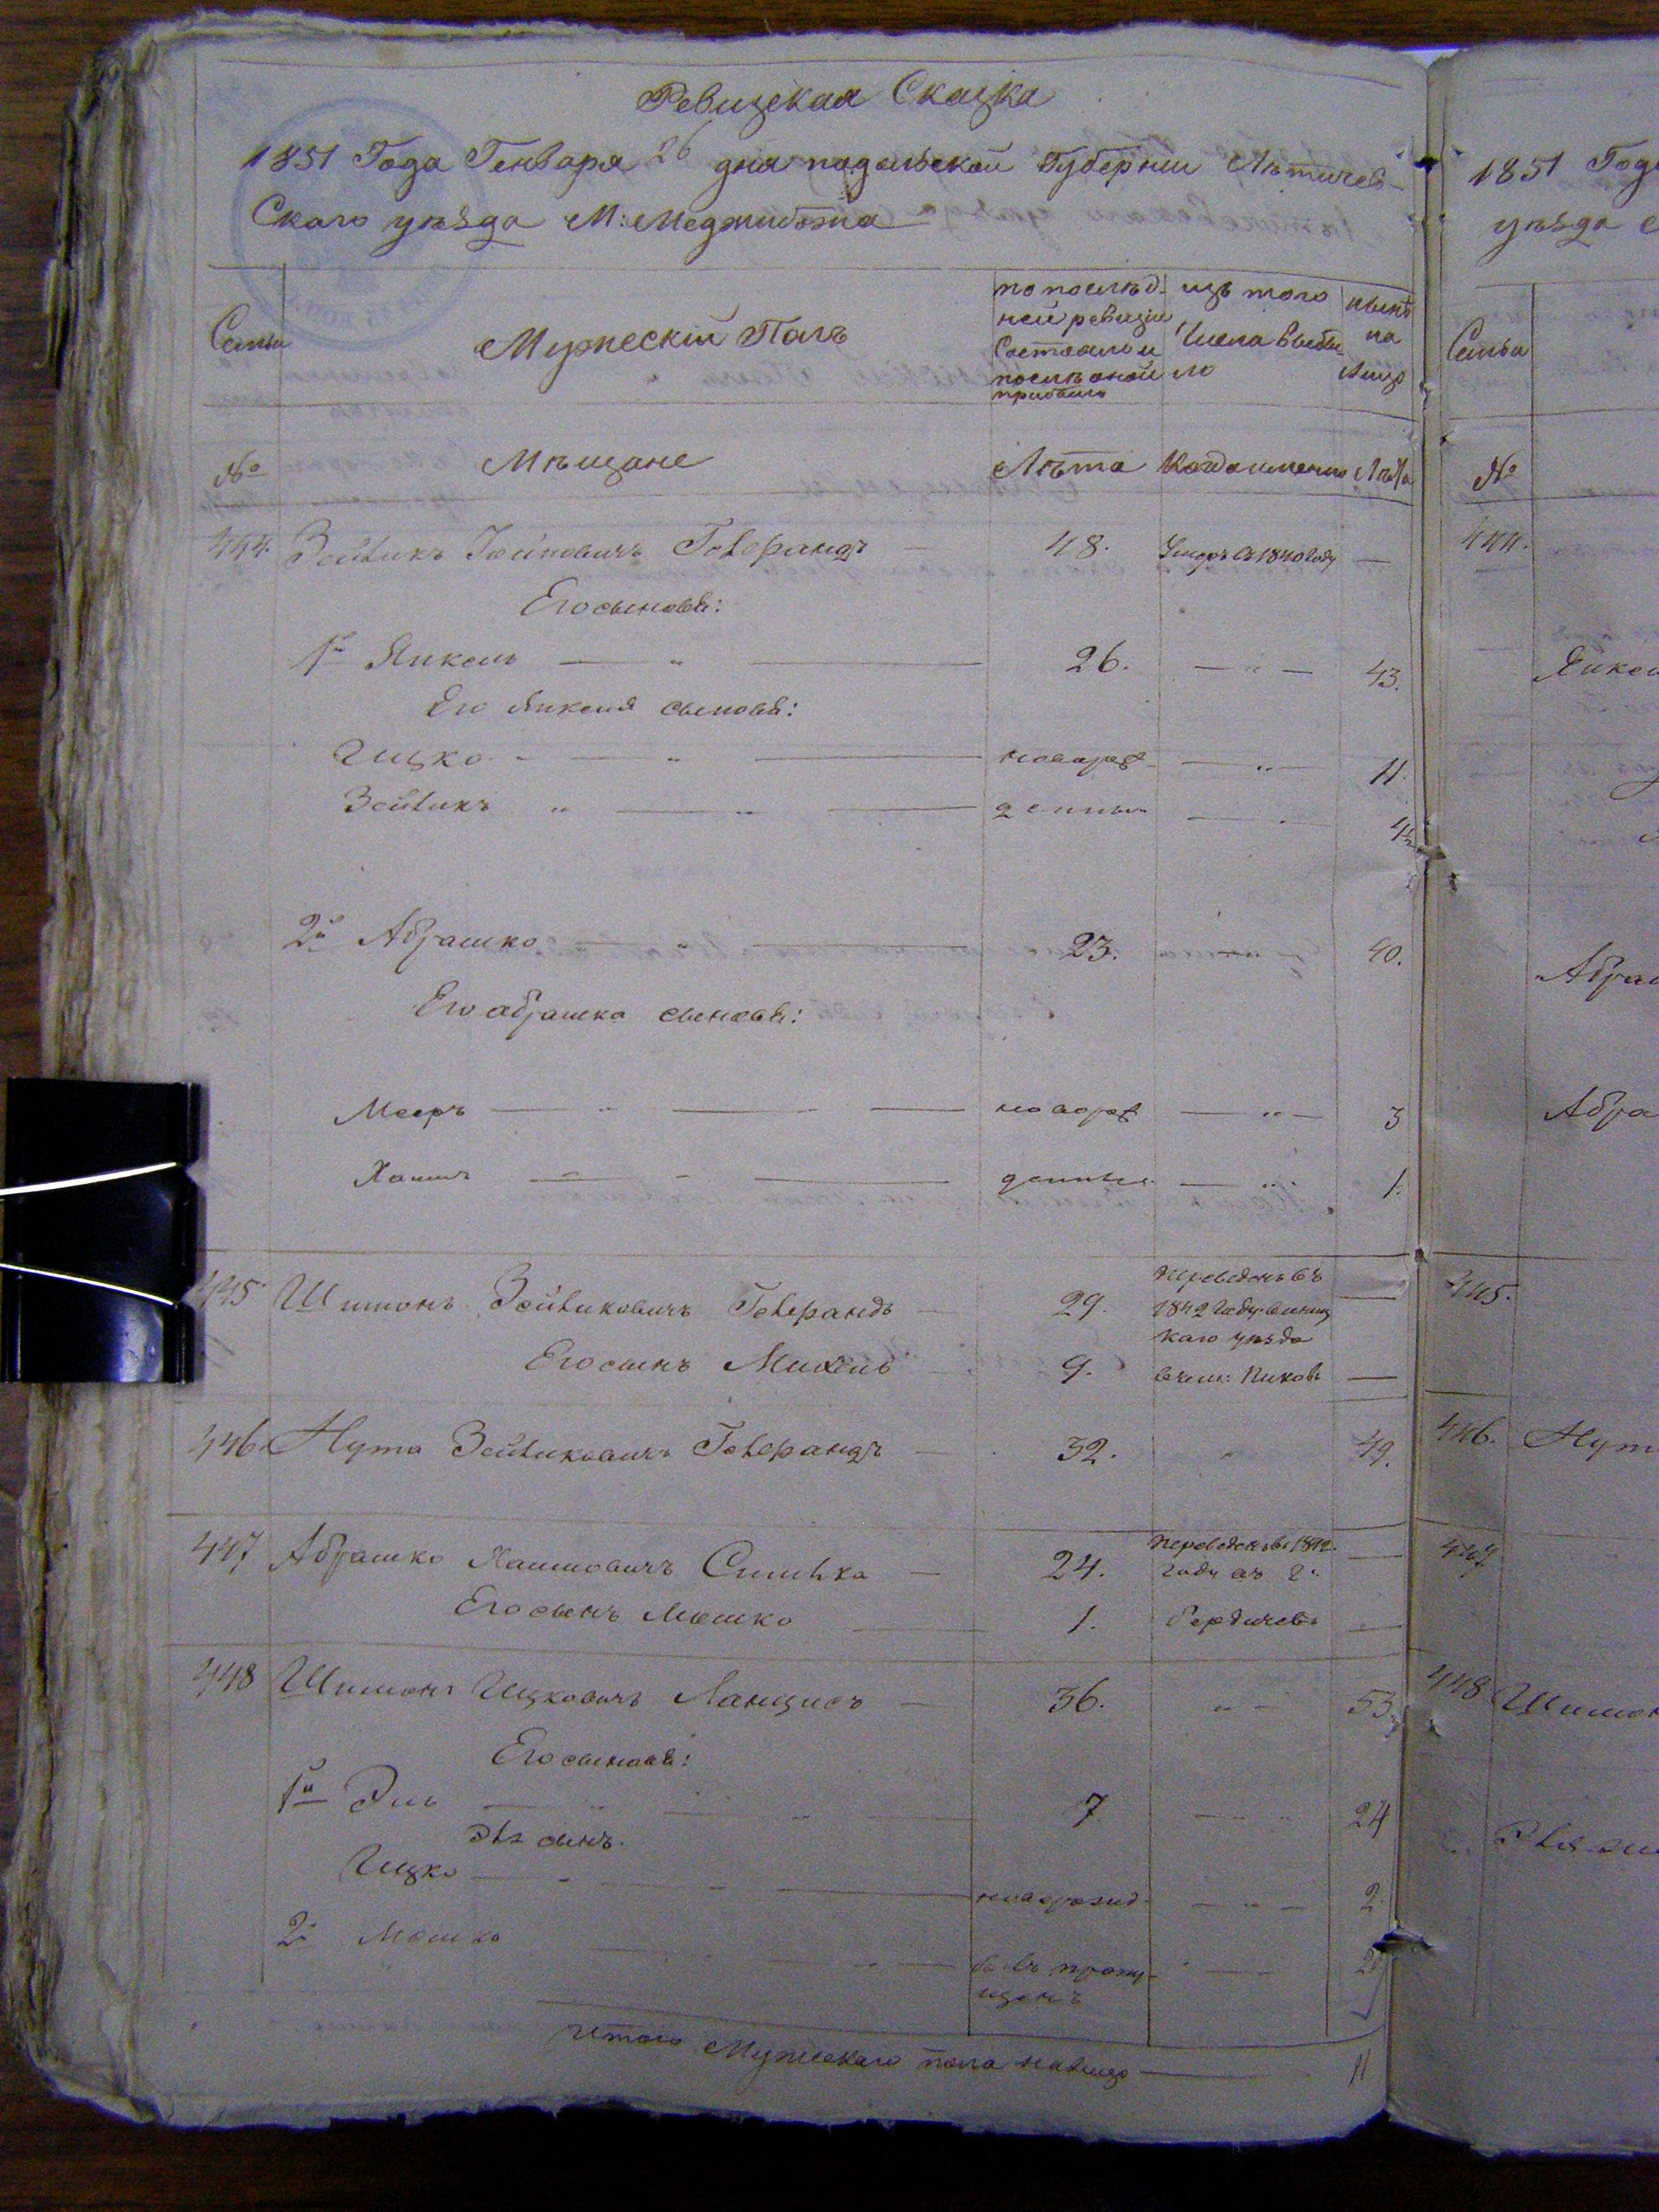 Ревизская Сказка
1851 Года Генваря 26 дня подольской Губернии Летичев-
Скаго уѣзда М: Меджибожа
Семьи
Мужескій Полъ
по послѣд-
ней ревизіи
Состояло и
послѣ оной
прибыло
изъ того
Числа выбы-
ло
нынѣ
на
лицо
№
Мѣщане
Лѣта
Когда именно
Лѣта
444. Зейликъ Гелерандъ — 48. Умеръ въ 1840 Году —
Его сыновья:
1й Янкель — 26. — 43.
Его Янкеля сыновья:
Ицко — новорож- — 11.
Зейликъ — денные —
2й Абрашко — 23. 40.
Его абрашка сыновья:
Мееръ — новорож — 3
Хаимъ — денные — 1.
445 Шимонъ Зейликовичъ Гелерандъ — 29. переведенъ въ
1842 Году винниц
каго уѣзда —
Его сынъ Михель 9. Пиковъ —
446 Нута Зейликовичъ Гелерандъ — 32. 49.
447 Абрашко Хаимовичъ — 24. переведенъ въ 1842 —
Году въ Г.
Его сынъ Мошко — 1. Бердичевъ —
448 Шимонъ Ицковичъ — 36. 53.
Его сыновья:
1й Эль — 7 — 24
Эля сынъ.
Ицко — новорожд — 2.
2й Мошко — былъ пропу-
щенъ
Итого Мужескаго пола налицо — 11
1851 Года
уѣзда
Семьи
№
444.
Янкел
Абраш
Абра
445.
446. Нут
447
448 Шимон